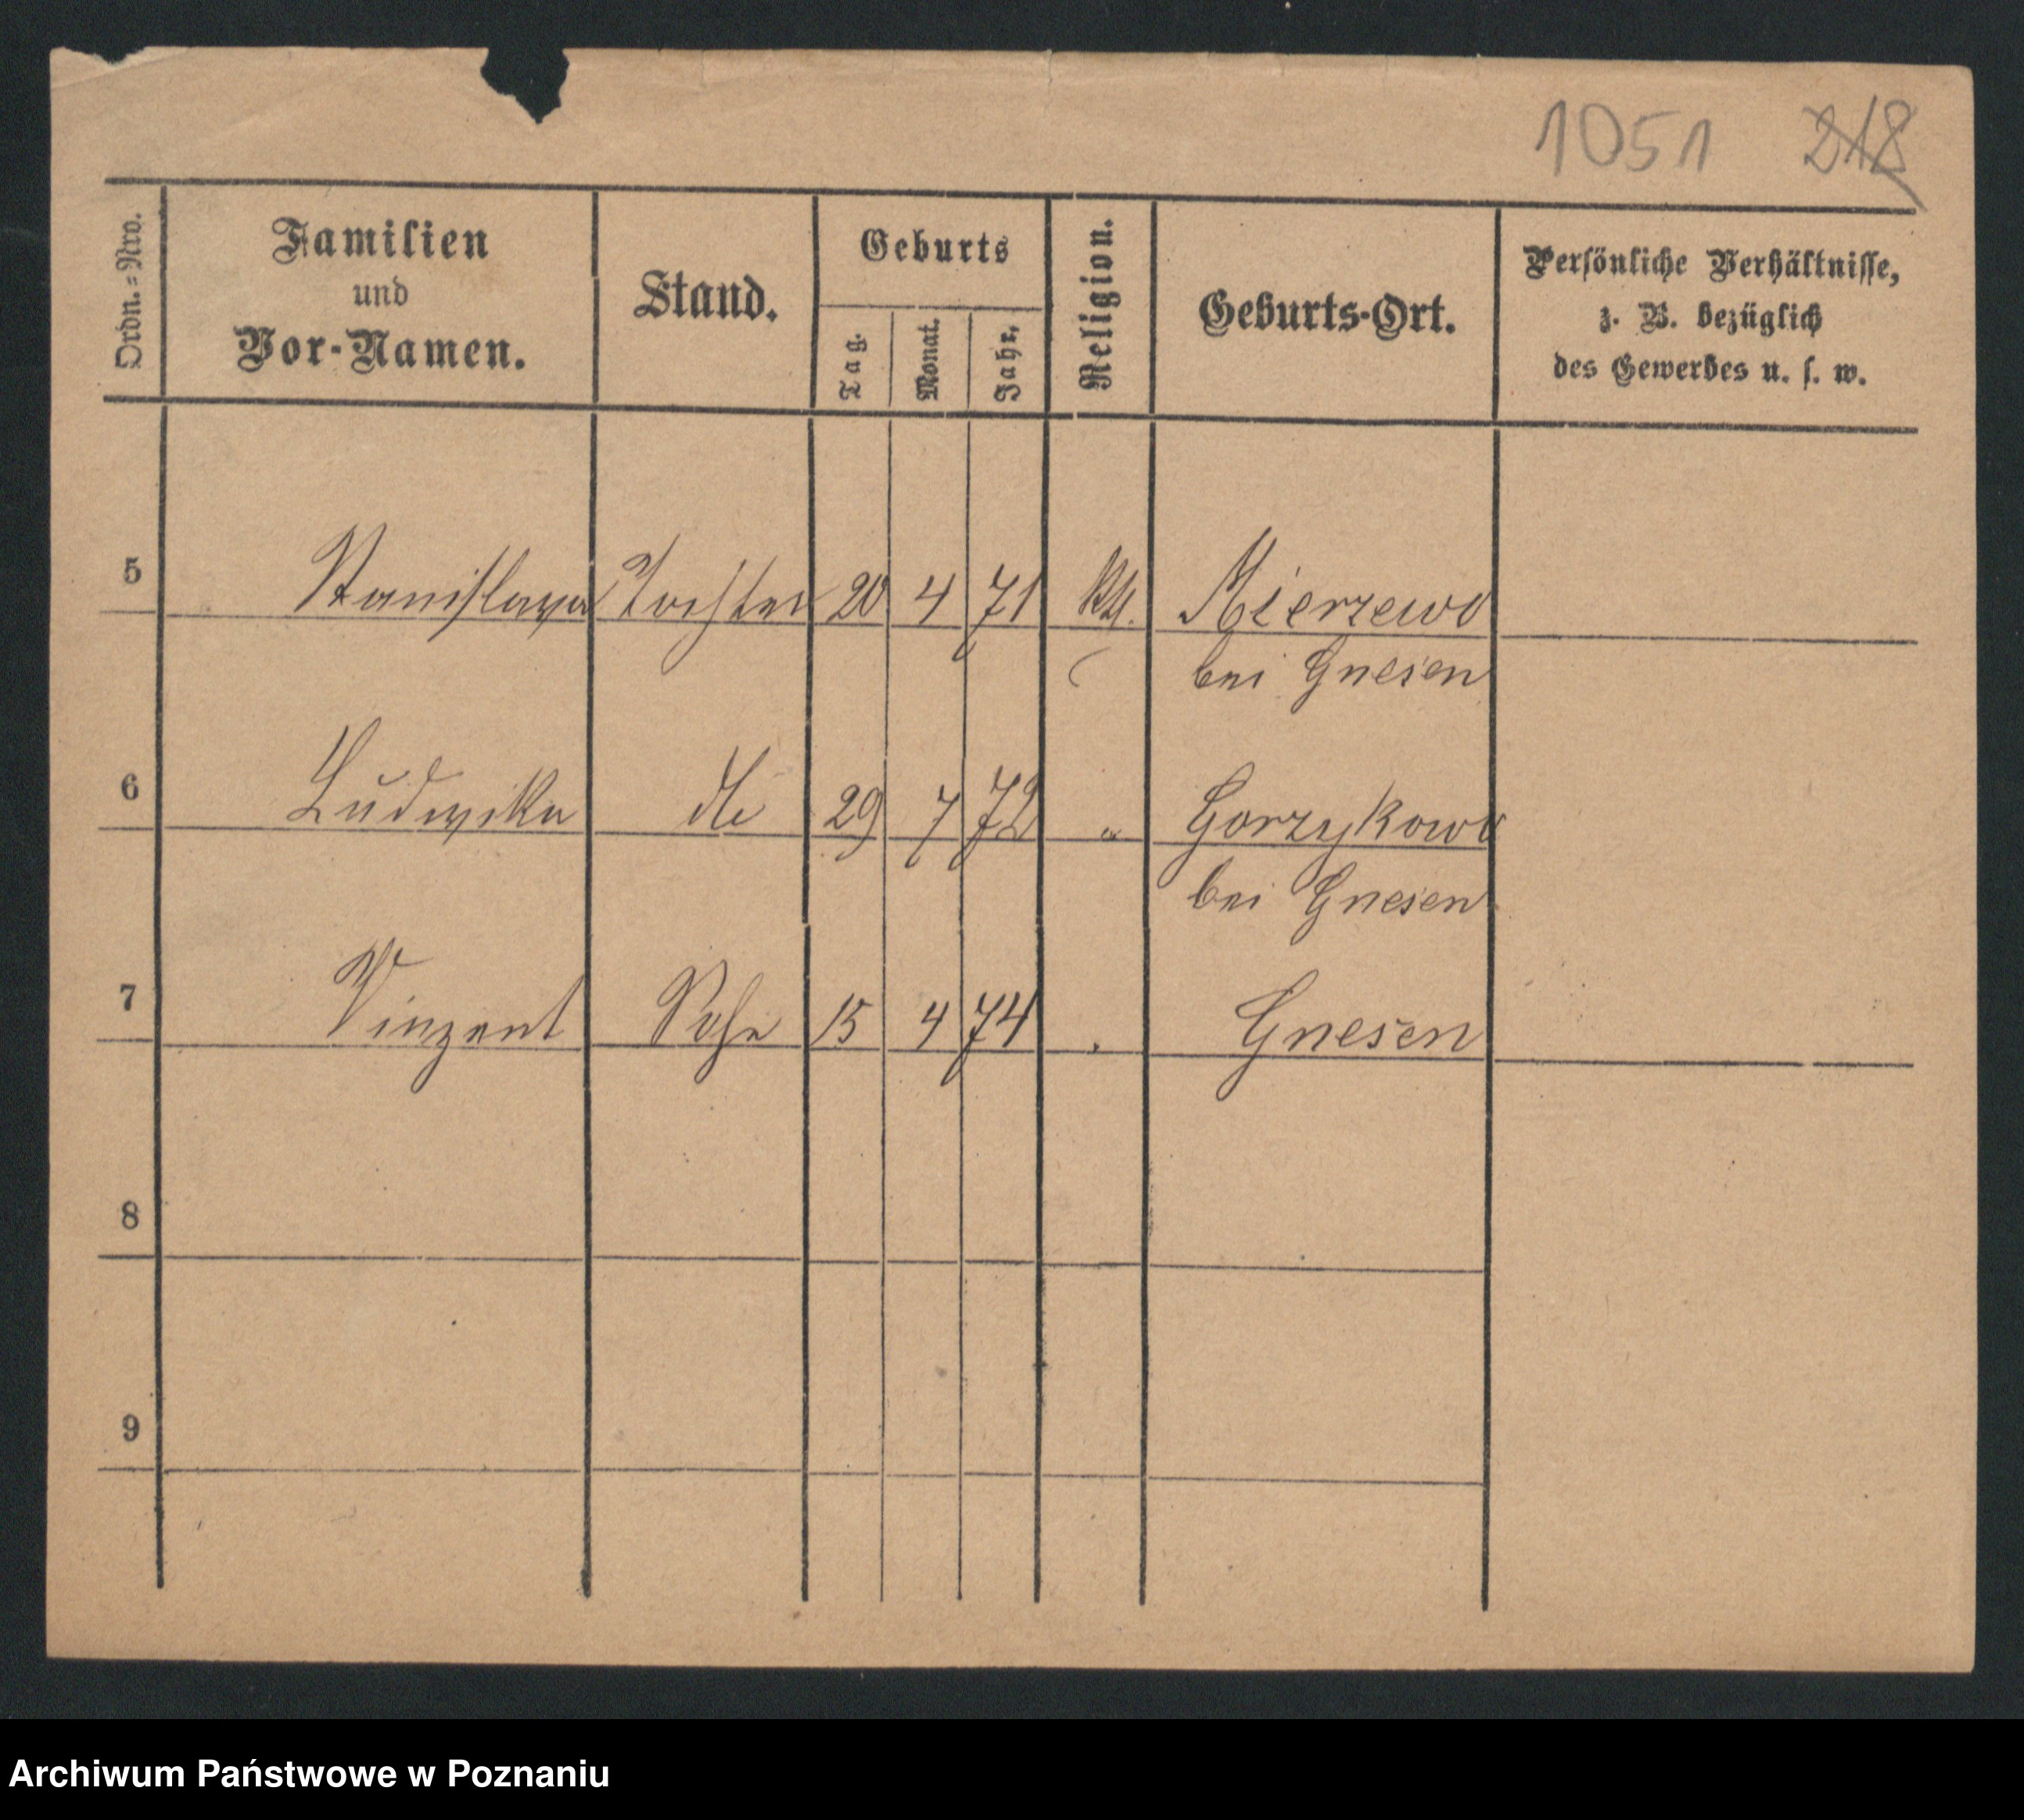 1051 218
Ordn.-Nro.
Familien
und
Vor-Namen.
Stand.
Geburts
Tag.
Monat.
Jahr.
Religion.
Geburts-Ort.
Persönliche Verhältnisse,
z. B. bezüglich
des Gewerbes u. s. w.
5 Stanislawa Tochter 20 4 71 kth. Mierzewo
bei Gnesen
6 Ludwika dto 29 7 72 " Gorzykowo
bei Gnesen
7 Vinzent Sohn 15 4 74 Gnesen
8
9
Archiwum Państwowe w Poznaniu